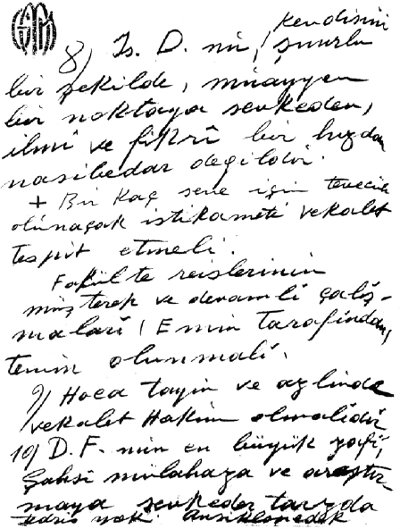 kendisini
8) İs. D. nin, şuurlu
bir şekilde, muayyen
bir noktaya sevkeden,
ilmî ve fikrî bir hızdan
nasibedar değildir.
+ Bir kaç sene için teveccüh
olunacak istikameti vekalet
tespit etmeli.
Fakülte reislerinin
müşterek ve devamli çaliş-
malari, Emin tarafindan,
temin olunmali.
9) Hoca tayin ve azlinde
vekalet Hakim olmalidir
10) D. F. nin en büyük zafi,
Şahsi mülahaza ve araştır-
maya sevkeder tarzda